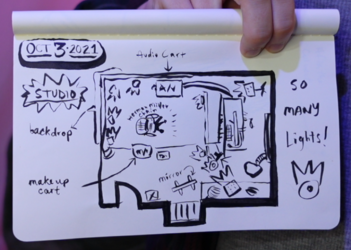 OCT 3·2021
Audio Cart
STUDIO
SO
MANY
Lights!
backdrop
makeup
cart
mirror